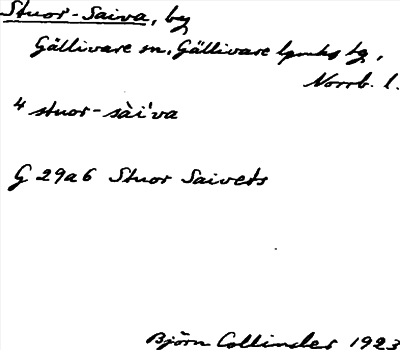 Stuor-Saiva, by
Gällivare sn, Gällivare lpmks tg,
Norrb. l.
4 stuor-sài'va
G 29a6 Stuor Saivets
Björn Collinder 1923